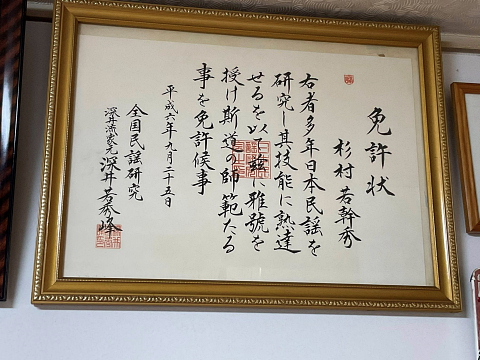 免許状
杉村若幹秀
右者多年日本民謡を
研究し其技能に熟達
せるを以て茲に雅號を
授け斯道の師範たる
事を免許候事
平成六年九月二十五日
全国民謡研究
深井流家元深井若秀峰